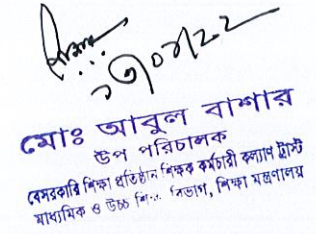 মোঃ আবুল বাশার
উপ পরিচালক
বেসরকারি শিক্ষা প্রতিষ্ঠান শিক্ষক কর্মচারী কল্যাণ ট্রাস্ট
মাধ্যমিক ও উচ্চ বিভাগ, শিক্ষা মন্ত্রণালয়